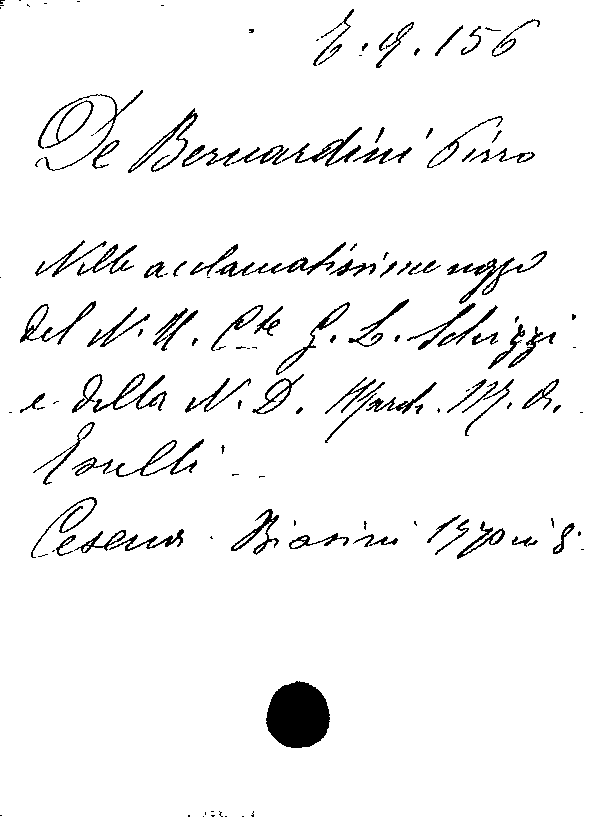 E. 9. 156
De Bernardini Pirro
Nelle acclamatissime nozze
del N. H. Cte G. L. Schizzi
e della N. D. March. M. A.
Eselli
Cesena. Biasini 1770 in 8.